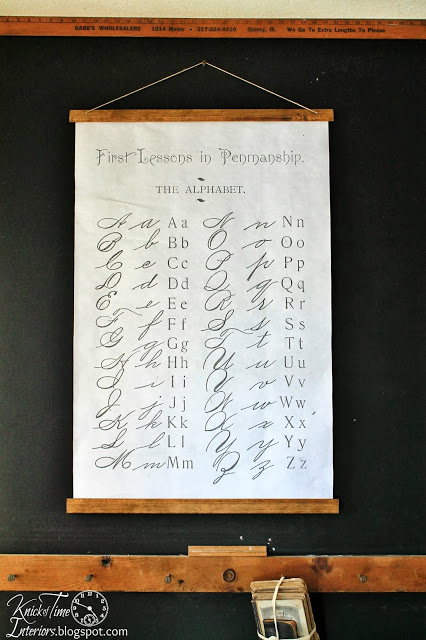 GABE'S WHOLESALERS 1014 Maine • 217-224-4610 Quincy, Ill. We Go To Extra Lengths To Please
First Lessons in Penmanship.
THE ALPHABET.
A a A a N n N n
B b B b O o O o
C c C c P p P p
D d D d Q q Q q
E e E e R r R r
F f F f S s S s
G g G g T t T t
H h H h U u U u
I i I i V v V v
J j J j W w W w
K k K k X x X x
L l L l Y y Y y
M m M m Z z Z z
Knick of Time
Interiors.blogspot.com